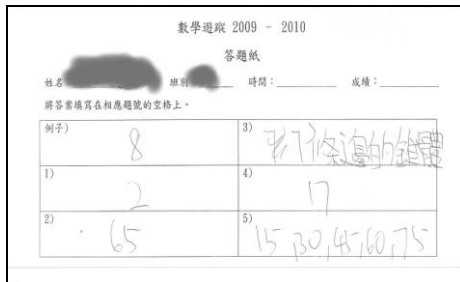 數學遊蹤 2009 - 2010
答題紙
姓名 班別 時間： 成績：
將答案填寫在相應題號的空格上。
例子) 8
3) 條邊的錐體
1) 2
4) 17
2) 65
5) 15,30,45,60,75